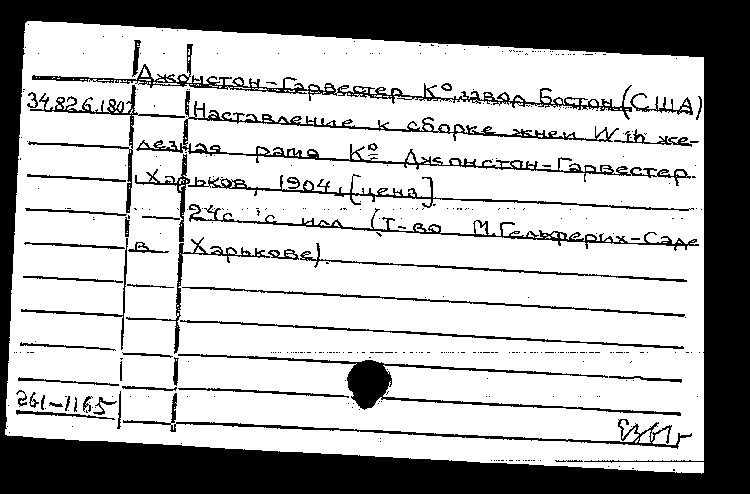 Джонстон-Гарвестер К⁰, завод Бостон (США)
34.82.6.1802
Наставление к сборке жнеи W ih же-
лезная рама К⁰ Джонстон-Гарвестер.
Харьков, 1904, [цена]
24с. с илл (Т-во М.Гельферих-Саде
в Харькове).
261-1165